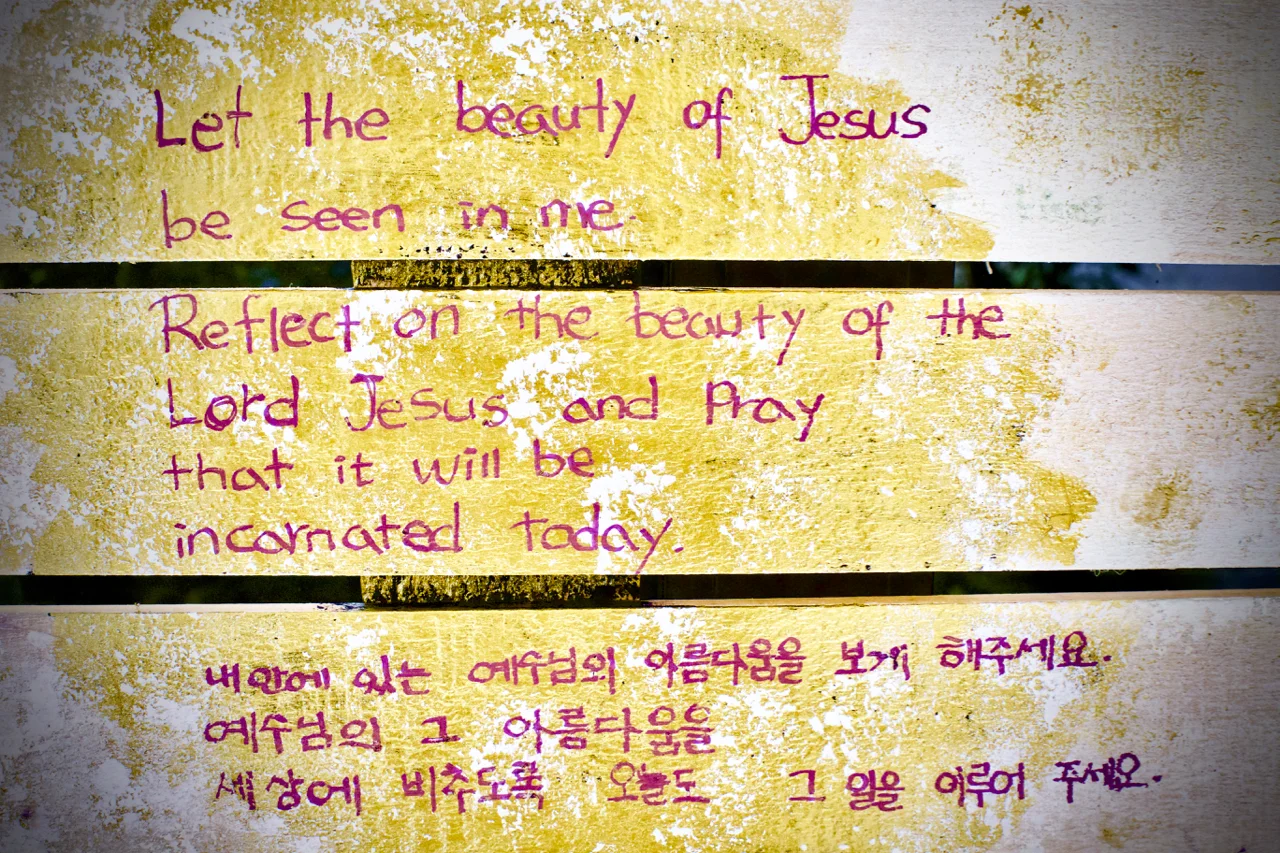 Let the beauty of Jesus
be seen in me.
Reflect on the beauty of the
Lord Jesus and Pray
that it will be
incarnated today.
내안에 있는 예수님의 아름다움을 보게 해주세요.
예수님의 그 아름다움을
세상에 비추도록 오늘도 그 일을 이루어 주세요.